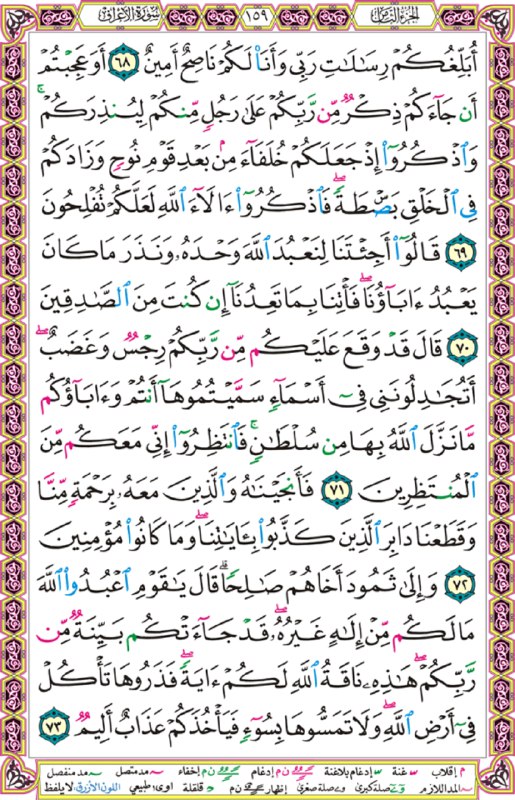 سُورَةُ الأَعْرَافِ ١٥٩ الجُزْءُ الثَّامِنُ
أُبَلِّغُكُمْ رِسَالَاتِ رَبِّي وَأَنَا۠ لَكُمْ نَاصِحٌ أَمِينٌ ٦٨ أَوَعَجِبْتُمْ
أَن جَآءَكُمْ ذِكْرٌ مِّن رَّبِّكُمْ عَلَىٰ رَجُلٍ مِّنكُمْ لِيُنذِرَكُمْ ۚ
وَٱذْكُرُوٓا۟ إِذْ جَعَلَكُمْ خُلَفَآءَ مِنۢ بَعْدِ قَوْمِ نُوحٍ وَزَادَكُمْ
فِي ٱلْخَلْقِ بَصْۜطَةً ۖ فَٱذْكُرُوٓا۟ ءَالَآءَ ٱللَّهِ لَعَلَّكُمْ تُفْلِحُونَ
٦٩ قَالُوٓا۟ أَجِئْتَنَا لِنَعْبُدَ ٱللَّهَ وَحْدَهُۥ وَنَذَرَ مَا كَانَ
يَعْبُدُ ءَابَآؤُنَا ۖ فَأْتِنَا بِمَا تَعِدُنَآ إِن كُنتَ مِنَ ٱلصَّٰدِقِينَ
٧٠ قَالَ قَدْ وَقَعَ عَلَيْكُم مِّن رَّبِّكُمْ رِجْسٌ وَغَضَبٌ ۖ
أَتُجَٰدِلُونَنِي فِيٓ أَسْمَآءٍ سَمَّيْتُمُوهَآ أَنتُمْ وَءَابَآؤُكُم
مَّا نَزَّلَ ٱللَّهُ بِهَا مِن سُلْطَٰنٍ ۚ فَٱنتَظِرُوٓا۟ إِنِّي مَعَكُم مِّنَ
ٱلْمُنتَظِرِينَ ٧١ فَأَنجَيْنَٰهُ وَٱلَّذِينَ مَعَهُۥ بِرَحْمَةٍ مِّنَّا
وَقَطَعْنَا دَابِرَ ٱلَّذِينَ كَذَّبُوا۟ بِـَٔايَٰتِنَا ۖ وَمَا كَانُوا۟ مُؤْمِنِينَ
٧٢ وَإِلَىٰ ثَمُودَ أَخَاهُمْ صَٰلِحًا ۗ قَالَ يَٰقَوْمِ ٱعْبُدُوا۟ ٱللَّهَ
مَا لَكُم مِّنْ إِلَٰهٍ غَيْرُهُۥ ۖ قَدْ جَآءَتْكُم بَيِّنَةٌ مِّن
رَّبِّكُمْ ۖ هَٰذِهِۦ نَاقَةُ ٱللَّهِ لَكُمْ ءَايَةً ۖ فَذَرُوهَا تَأْكُلْ
فِيٓ أَرْضِ ٱللَّهِ ۖ وَلَا تَمَسُّوهَا بِسُوٓءٍ فَيَأْخُذَكُمْ عَذَابٌ أَلِيمٌ ٧٣
م إقلاب س غنة إدغام بلاغنة ن م إدغام ن م إخفاء مد متصل مد منفصل
المد اللازم صلة كبرى صلة صغرى إظهار ن م قلقلة اوى: طبيعي اللون الأزرق: لا يلفظ